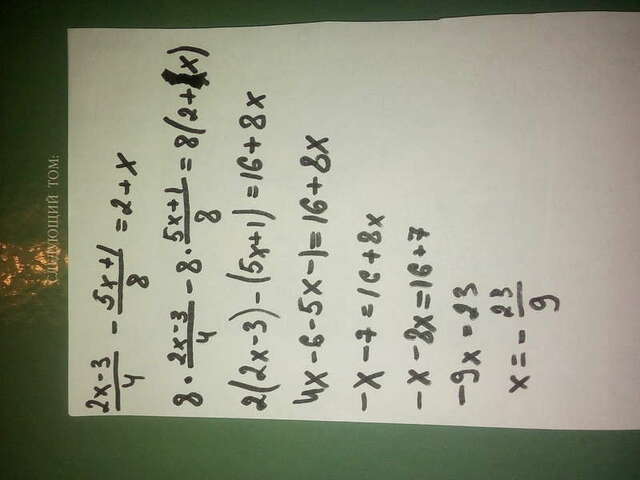 СЛЕДУЮЩИЙ ТОМ:
(2x-3)/4 - (5x+1)/8 = 2+x
8·(2x-3)/4 - 8·(5x+1)/8 = 8(2+x)
2(2x-3)-(5x+1)=16+8x
4x-6-5x-1=16+8x
-x-7=16+8x
-x-8x=16+7
-9x=23
x=-23/9